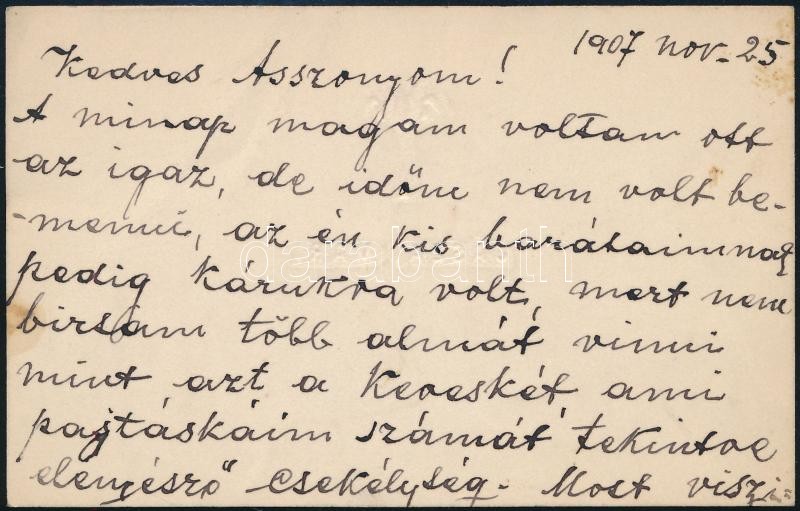 1907 nov. 25
Kedves Asszonyom!
A minap magam voltam ott
az igaz, de időm nem volt be-
-menni, az én kis barátaimnak
pedig kárukra volt, mert nem
birtam több almát vinni
mint azt a keveskét ami
pajtáskáim számát tekintve
elenyésző csekélység. Most viszi-
darabanth